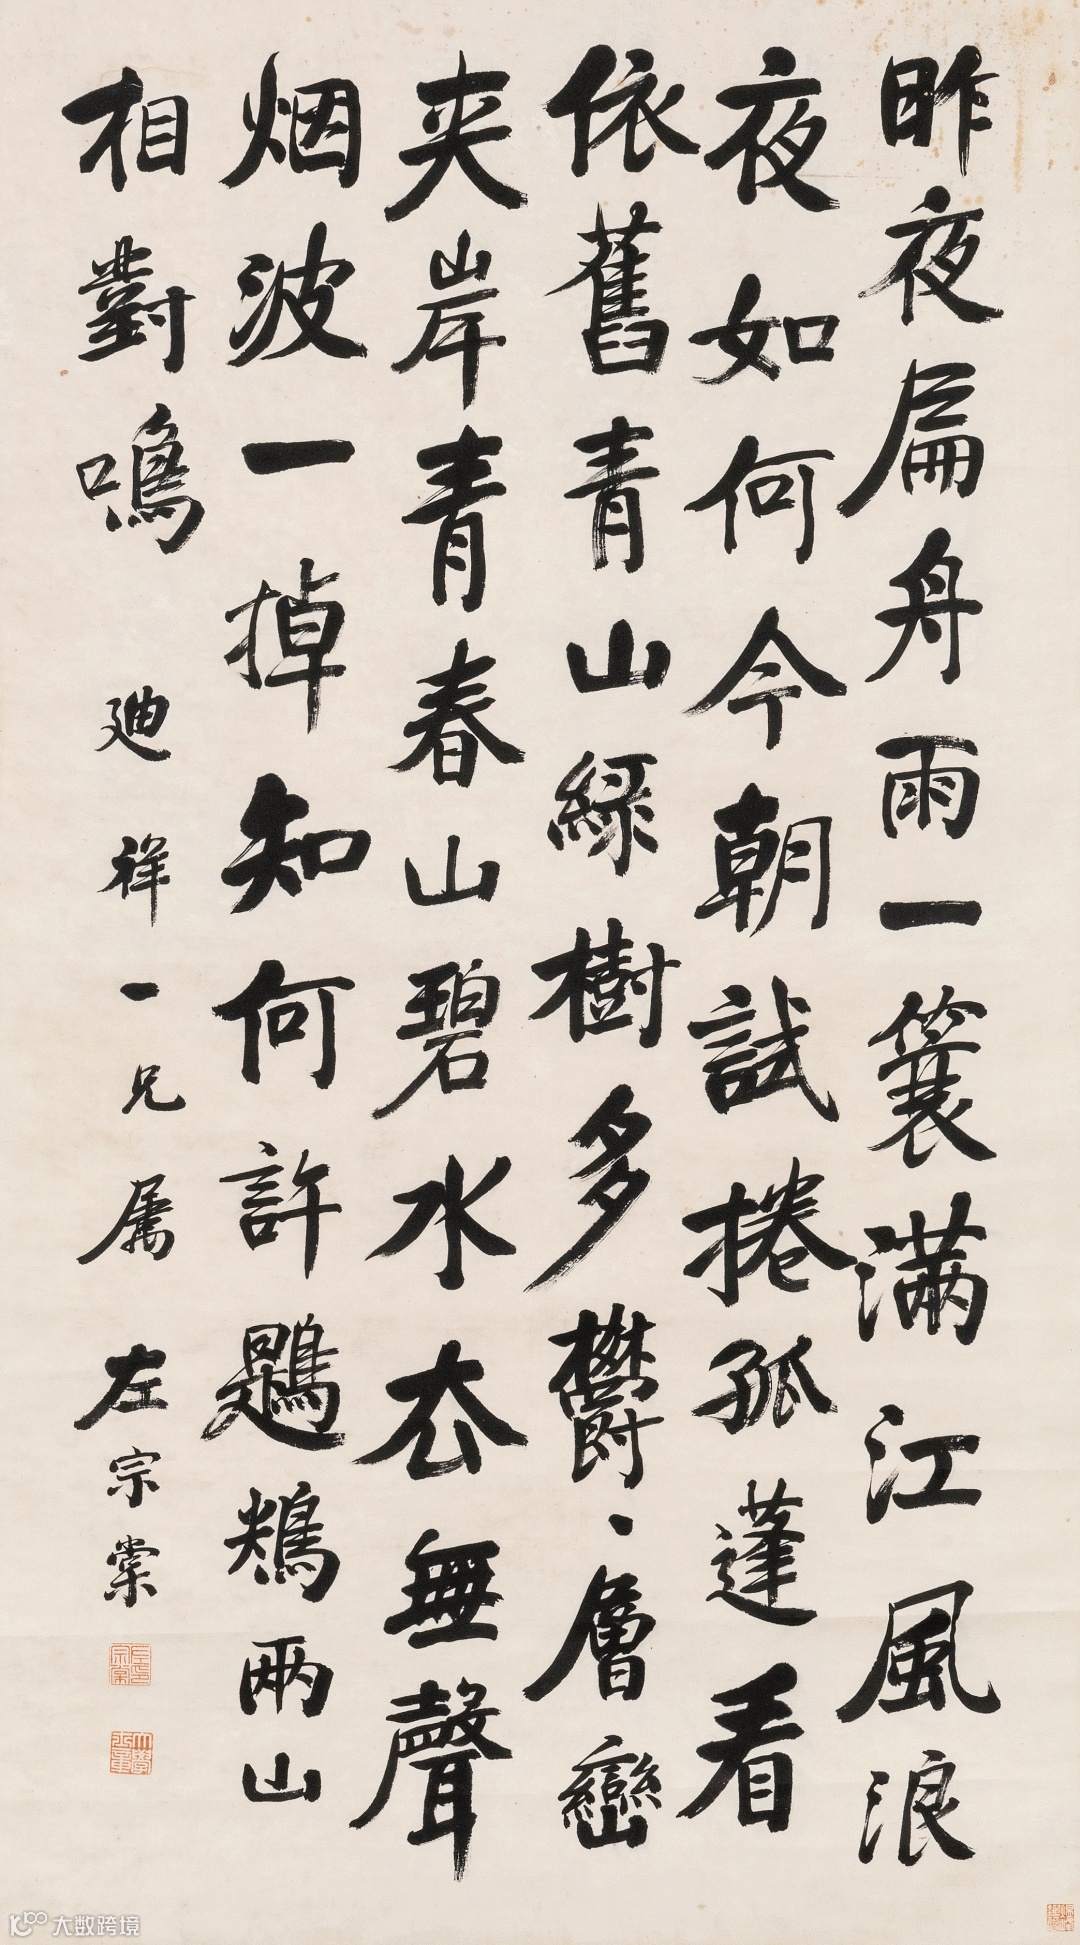 昨夜扁舟雨一簑滿江風浪
夜如何今朝試捲孤蓬看
依舊青山綠樹多鬱、層巒
夾岸青春山碧水去無聲
烟波一掉知何許鶗鴂兩山
相對鳴
廸祥一兄属
左宗棠
大数跨境